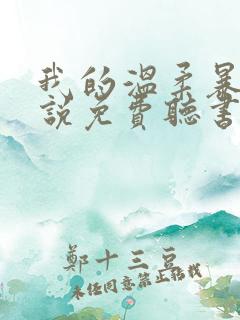 我的溫柔暴
說免費聽書
鄭十三豆
未經同意禁止轉載